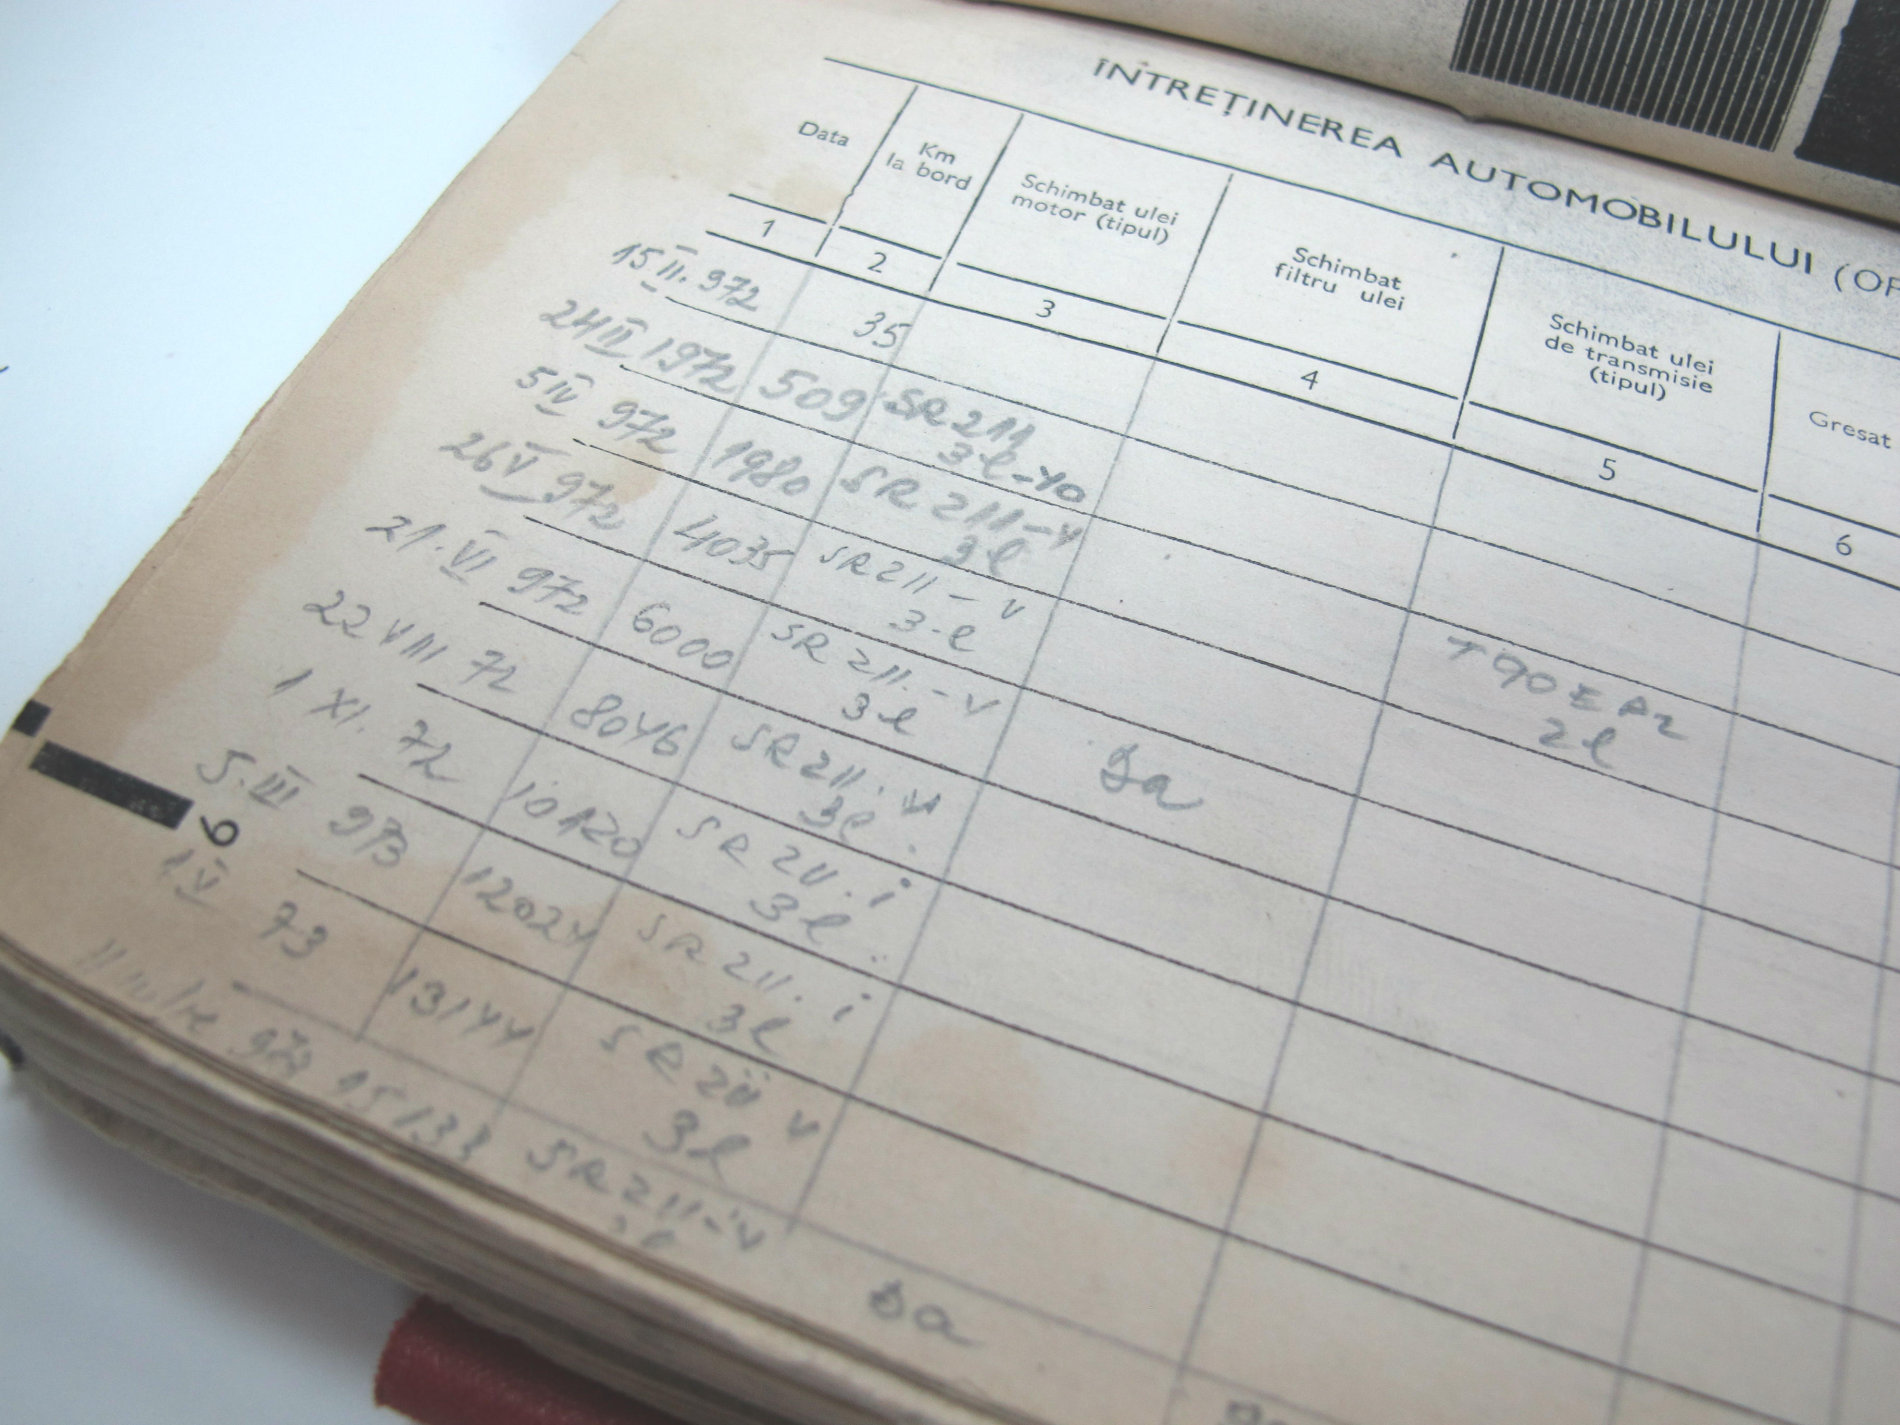 ÎNTREȚINEREA AUTOMOBILULUI (OP
Data
Km
la bord
Schimbat ulei
motor (tipul)
Schimbat
filtru ulei
Schimbat ulei
de transmisie
(tipul)
Gresat
1 2 3 4 5 6
15 II. 972 35
24 III 1972 509 SR 211
3 l - 40
5 IV 972 1980 SR 211 - V
3 l
26 V 972 4035 SR 211 - V
3 l
T 90 E P2
2 l
21. VI 972 6000 SR 211. - V
3 l
22 VIII 72 8046 SR 211. V
3 l
Da
1 XI. 72 10120 SR 211. i
3 l
5. III 973 12024 SR 211. i
3 l
1 V 73 13144 SR 211 V
3 l
973 15133 SR 211 - V
Da
6